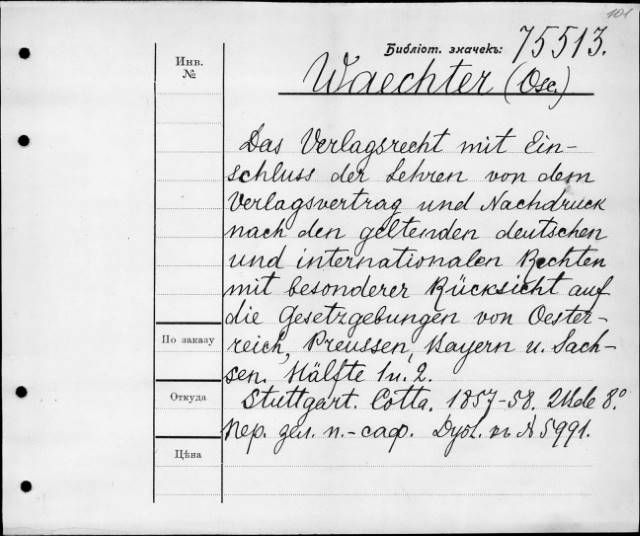 101
Библіот. значекъ: 75513.
Инв.
№
Waechter (Osc.)
Das Verlagsrecht mit Ein-
schluss der Lehren von dem
Verlagsvertrag und Nachdruck
nach den geltenden deutschen
und internationalen Rechten
mit besonderer Rücksicht auf
die Gesetzgebungen von Oester-
По заказу
reich, Preussen, Bayern u. Sach-
sen. Hälfte 1 u. 2.
Откуда
Stuttgart. Cotta. 1857-58. 8°
Пер. зел. п.-саф. Дубл. № 5991.
Цѣна